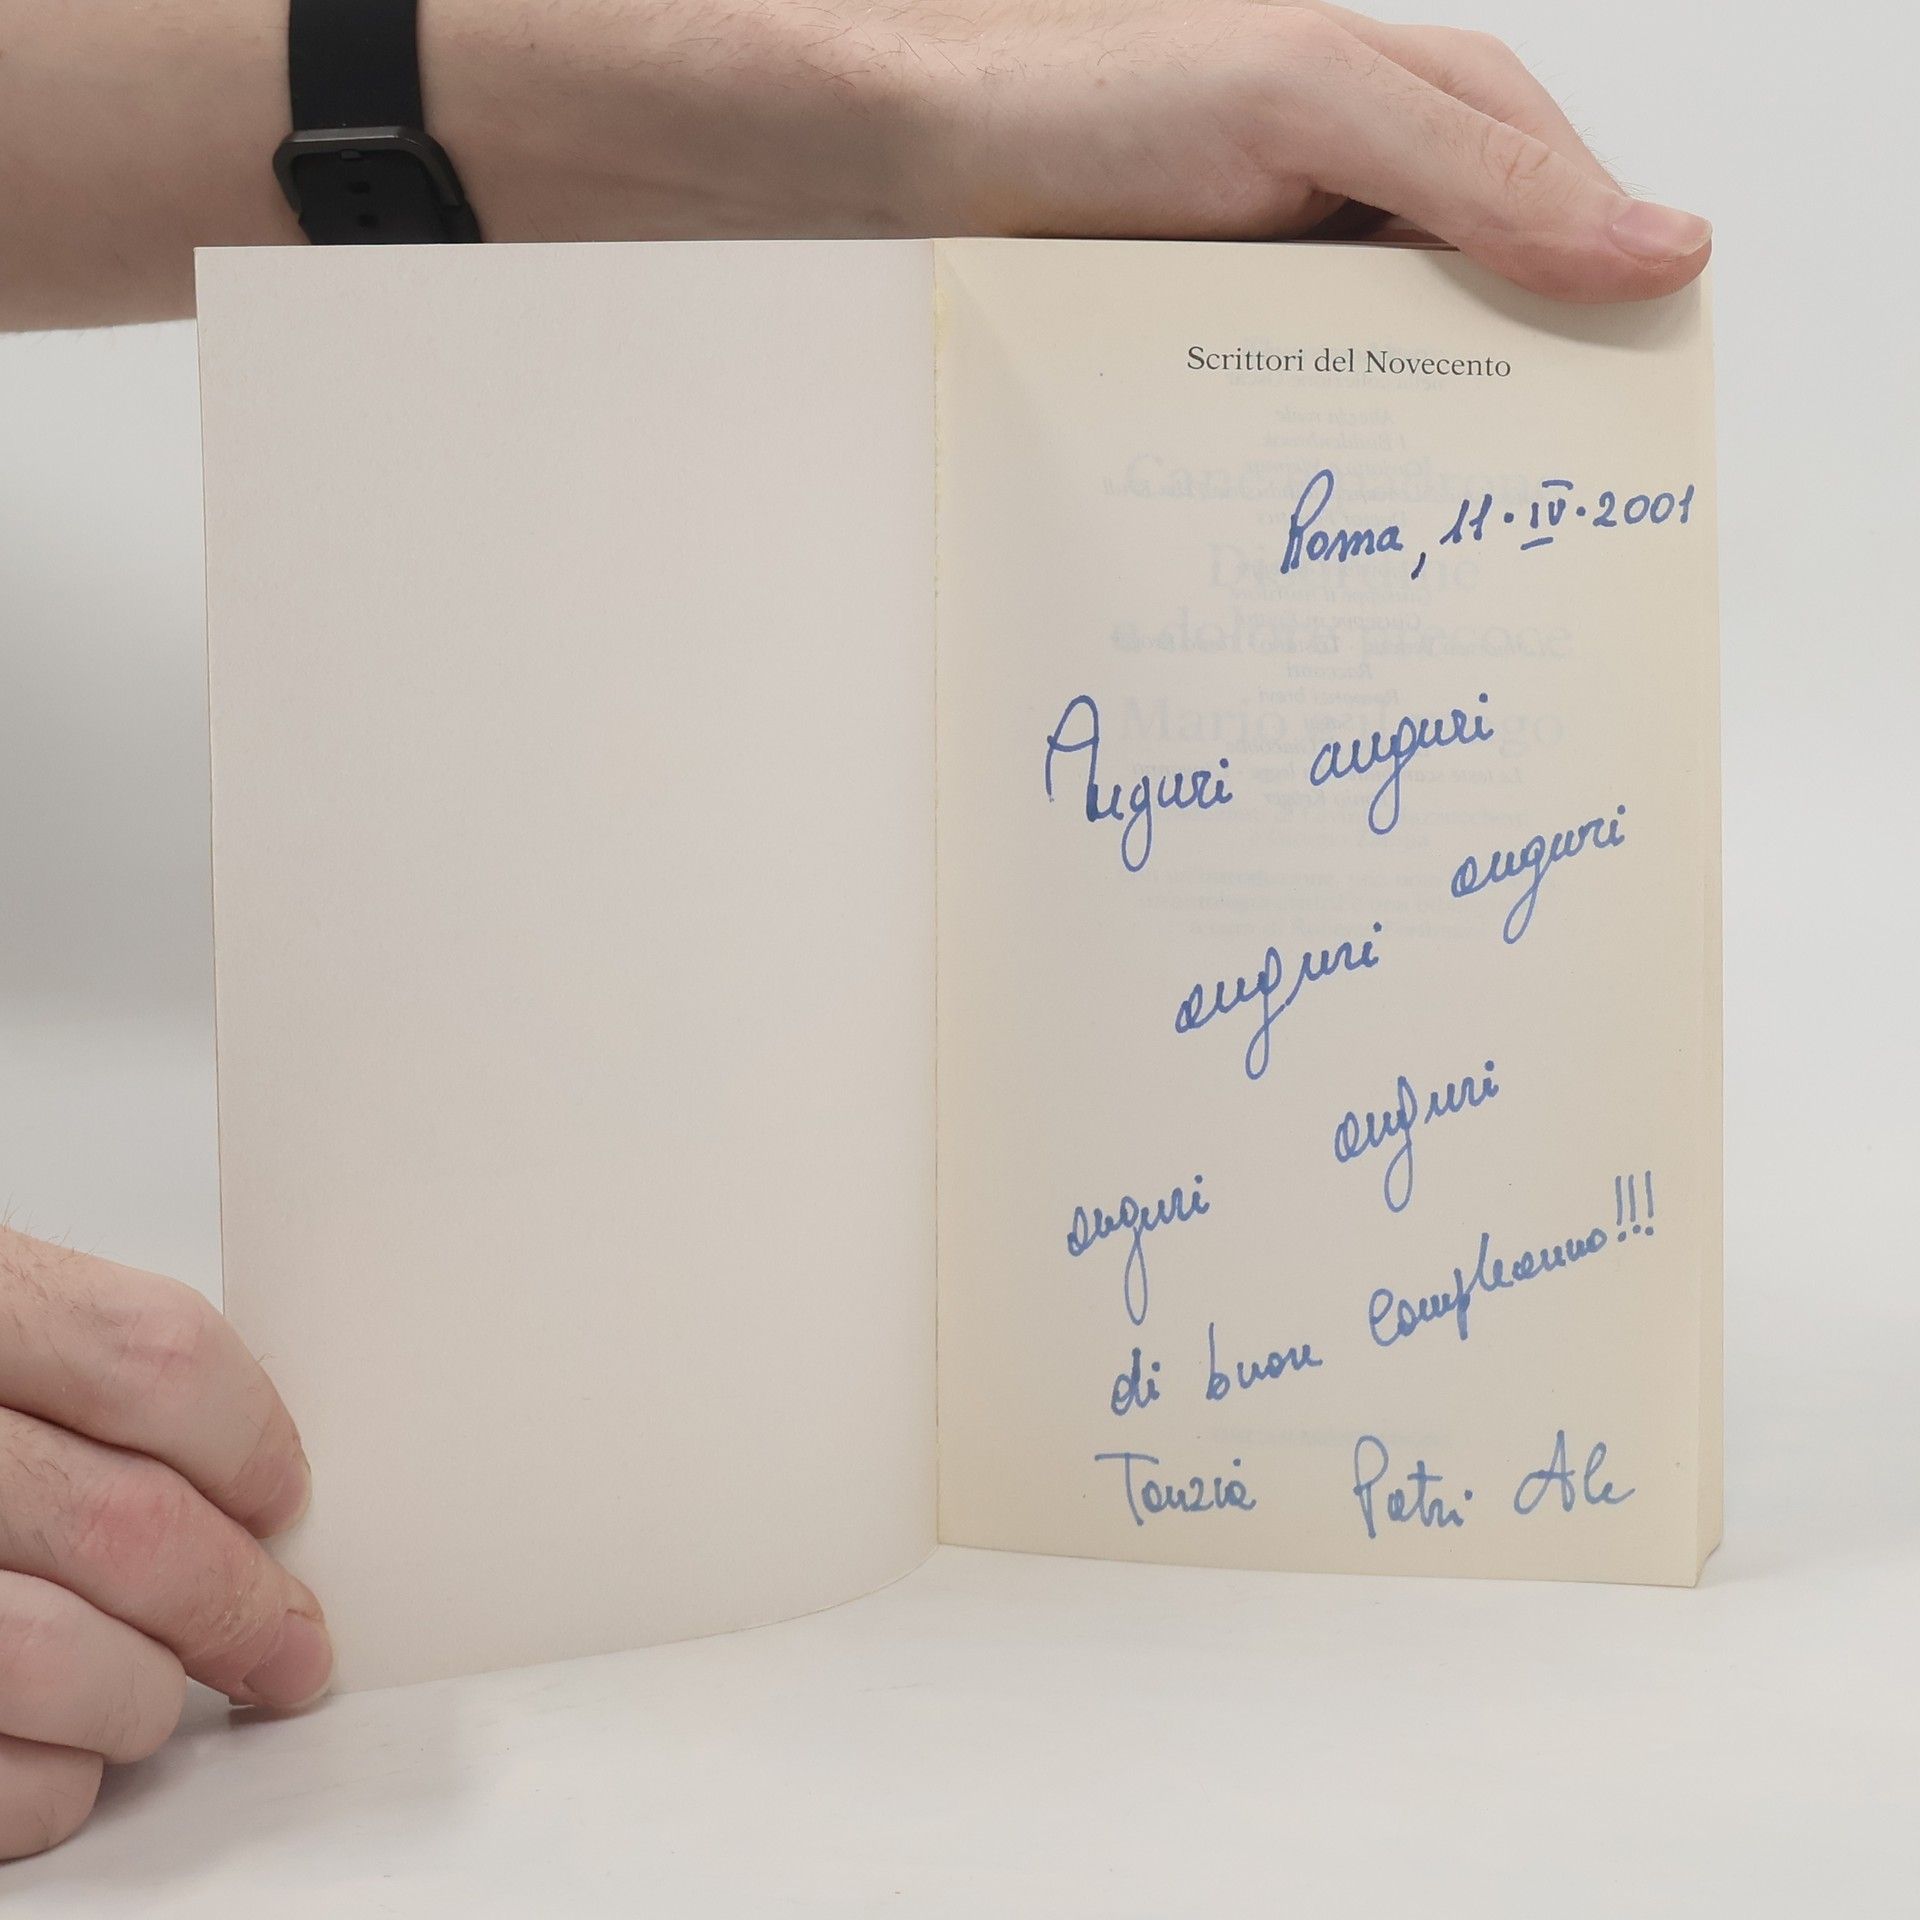 Scrittori del Novecento
Roma, 11·IV·2001
Auguri auguri
auguri
auguri
auguri
auguri
di buon Compleanno!!!
Tanzia Patri Ale